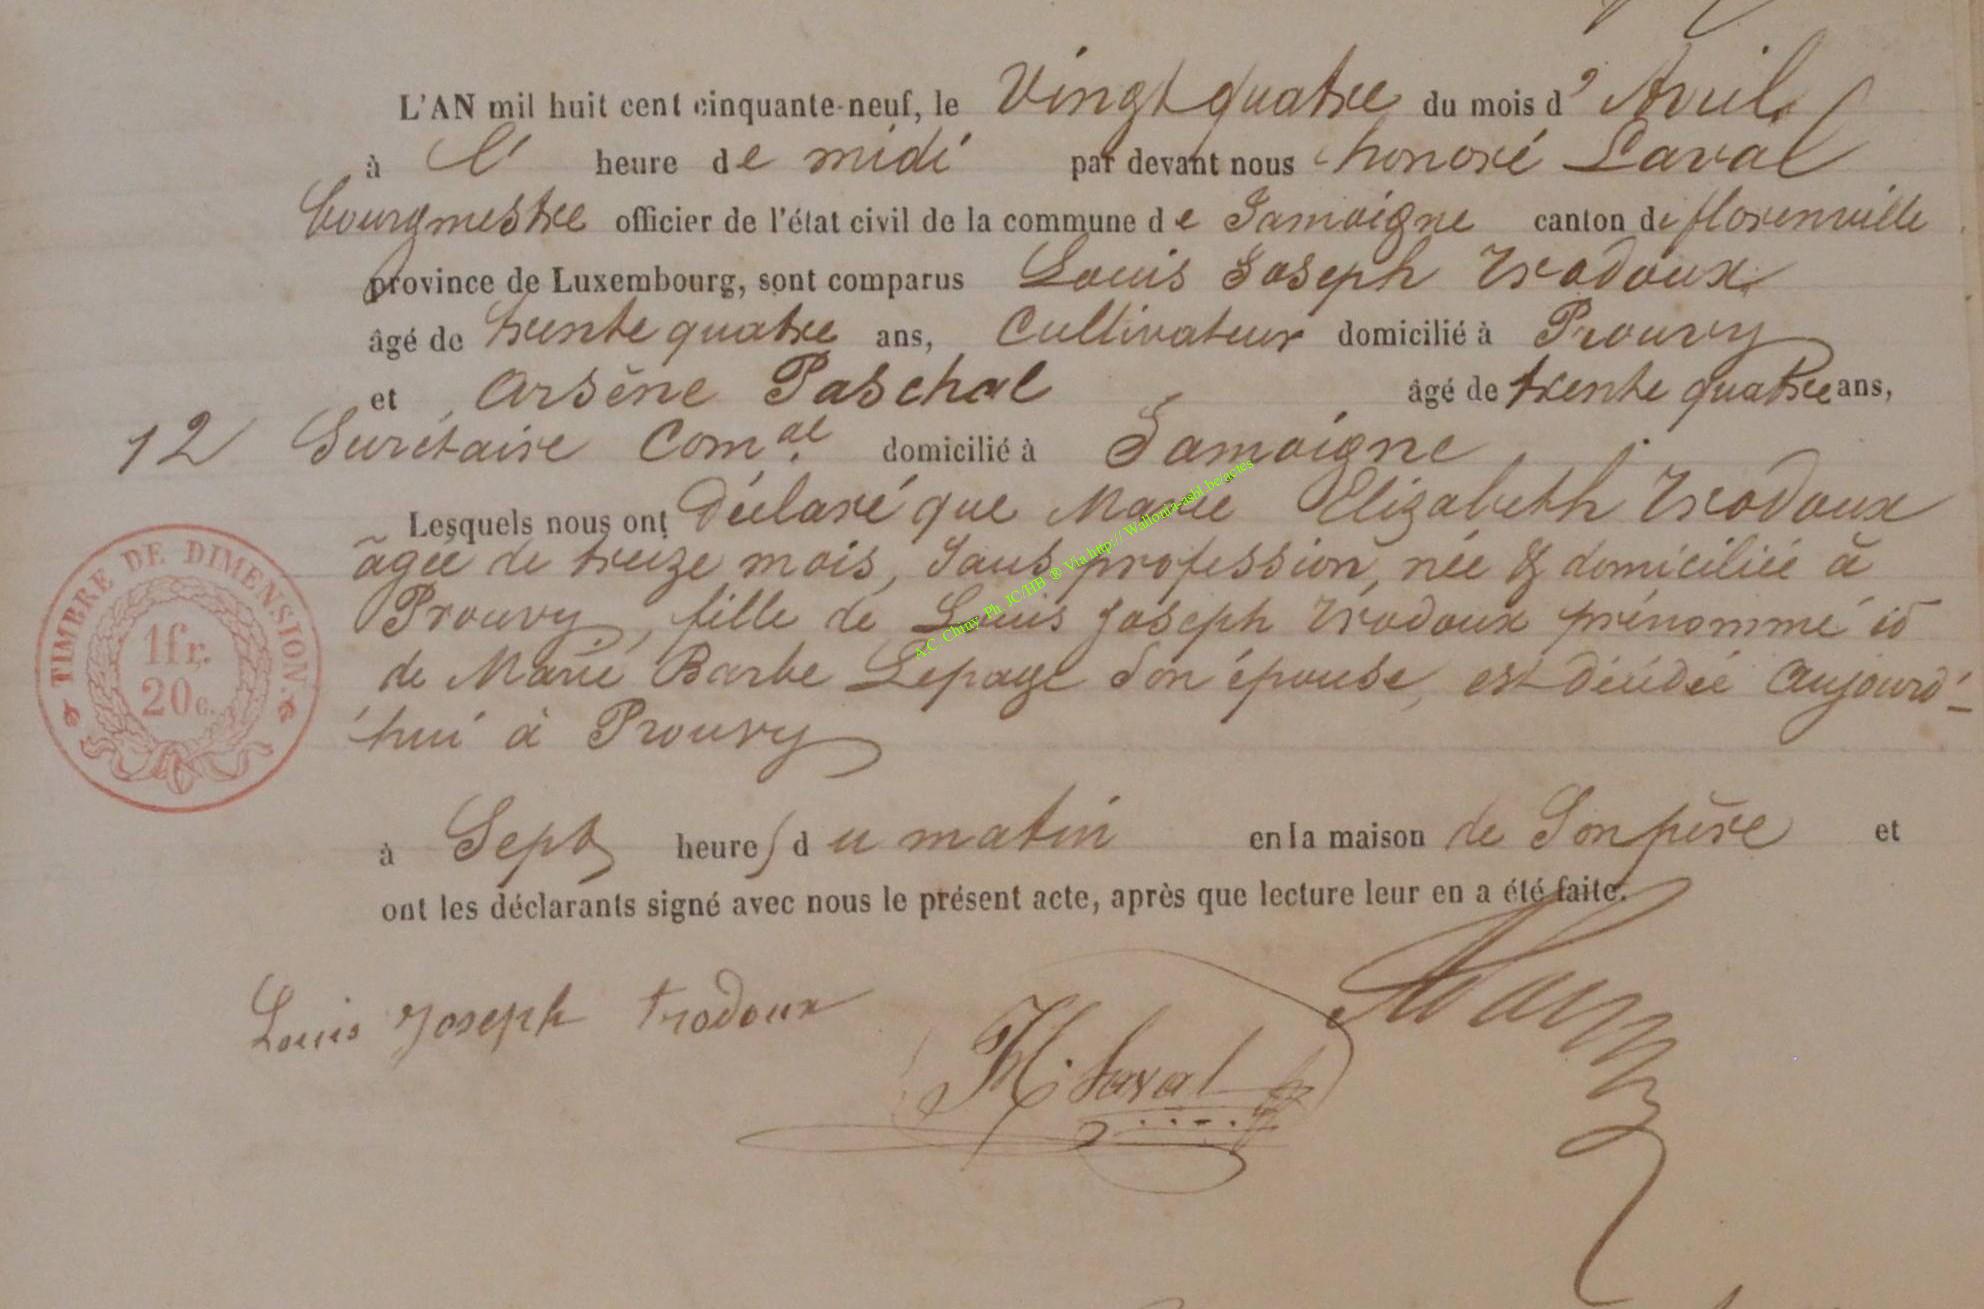 L'AN mil huit cent cinquante-neuf, le Vingt quatre du mois d' Avril
à l' heure de midi par devant nous honoré Laval
bourgmestre officier de l'état civil de la commune de Jamoigne canton de florenville
province de Luxembourg, sont comparus Louis Joseph Trodoux
âgé de trente quatre ans, Cultivateur domicilié à Prouvy
et Arsène Paschal âgé de trente quatre ans,
12 Secrétaire Com.al domicilié à Jamoigne
Lesquels nous ont déclaré que Marie Elizabeth Trodoux
âgée de treize mois, Sans profession, née & domiciliée à
Prouvy, fille de Louis Joseph Trodoux prénommé &
de Marie Barbe Lepage Son épouse, est décédée aujourd'
hui à Prouvy
à Sept heures du matin en la maison de Son père et
ont les déclarants signé avec nous le présent acte, après que lecture leur en a été faite.
Louis Joseph trodoux
H. Laval
TIMBRE DE DIMENSION.
1 fr.
20 c.
A.C Chiny Ph JC/HB ® Via http://Wallonia-asbl.be/actes